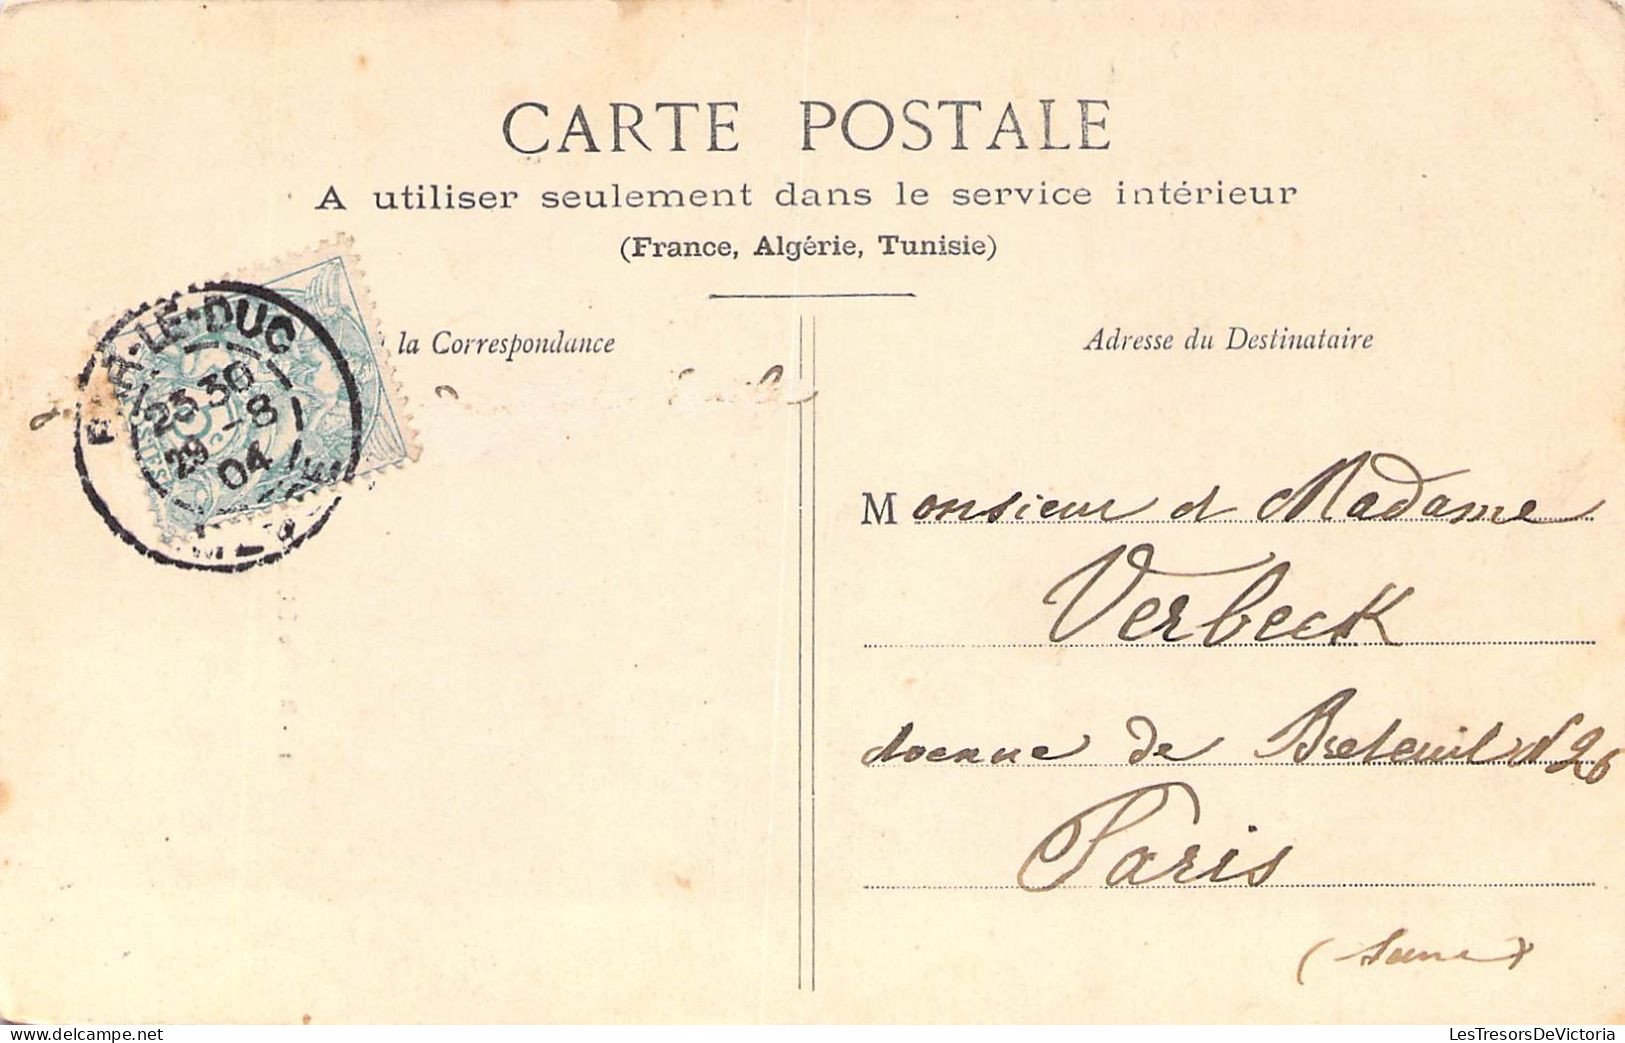 CARTE POSTALE
A utiliser seulement dans le service intérieur
(France, Algérie, Tunisie)
la Correspondance
Adresse du Destinataire
BAR-LE-DUC
23 30
29 -8
04
POSTES
Monsieur et Madame
Verbeck
Avenue de Breteuil N 26
Paris
(Seine)
LesTresorsDeVictoria